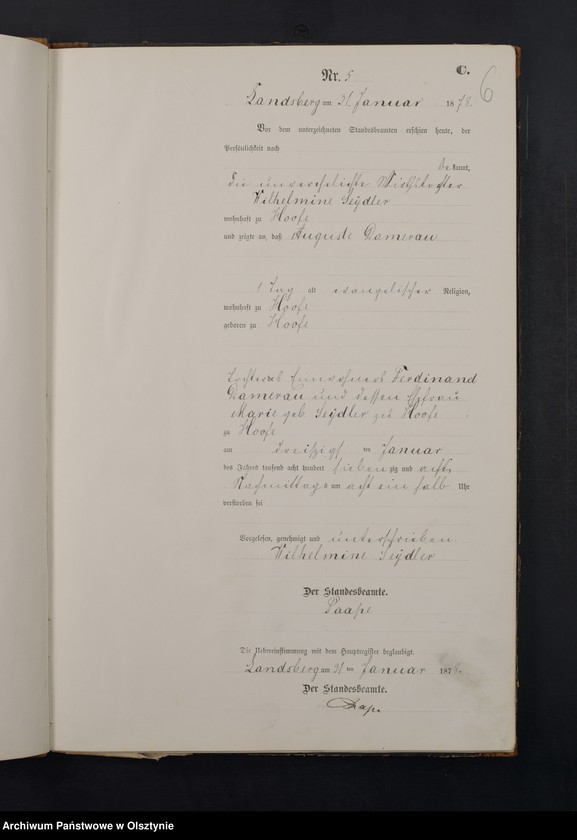 Nr. 5
C.
6
Landsberg am 31 Januar 1878.
Vor dem unterzeichneten Standesbeamten erschien heute, der
Persönlichkeit nach
be kannt,
die unverehelichte
Wilhelmine Seydler
wohnhaft zu Hoofe
und zeigte an, daß Auguste Damerau
1 Tag alt evangelischer Religion,
wohnhaft zu Hoofe
geboren zu Hoofe
Tochter des Einwohners Ferdinand
Damerau und dessen Ehefrau
Marie geb Seydler zu Hoofe
zu Hoofe
am dreißigst ten Januar
des Jahres tausend acht hundert siebenzig und acht
Nachmittags um acht ein halb Uhr
verstorben sei
Vorgelesen, genehmigt und unterschrieben
Wilhelmine Seydler
Der Standesbeamte.
Paape
Die Uebereinstimmung mit dem Hauptregister beglaubigt.
Landsberg am 31 ten Januar 1878.
Der Standesbeamte.
Paape
Archiwum Państwowe w Olsztynie